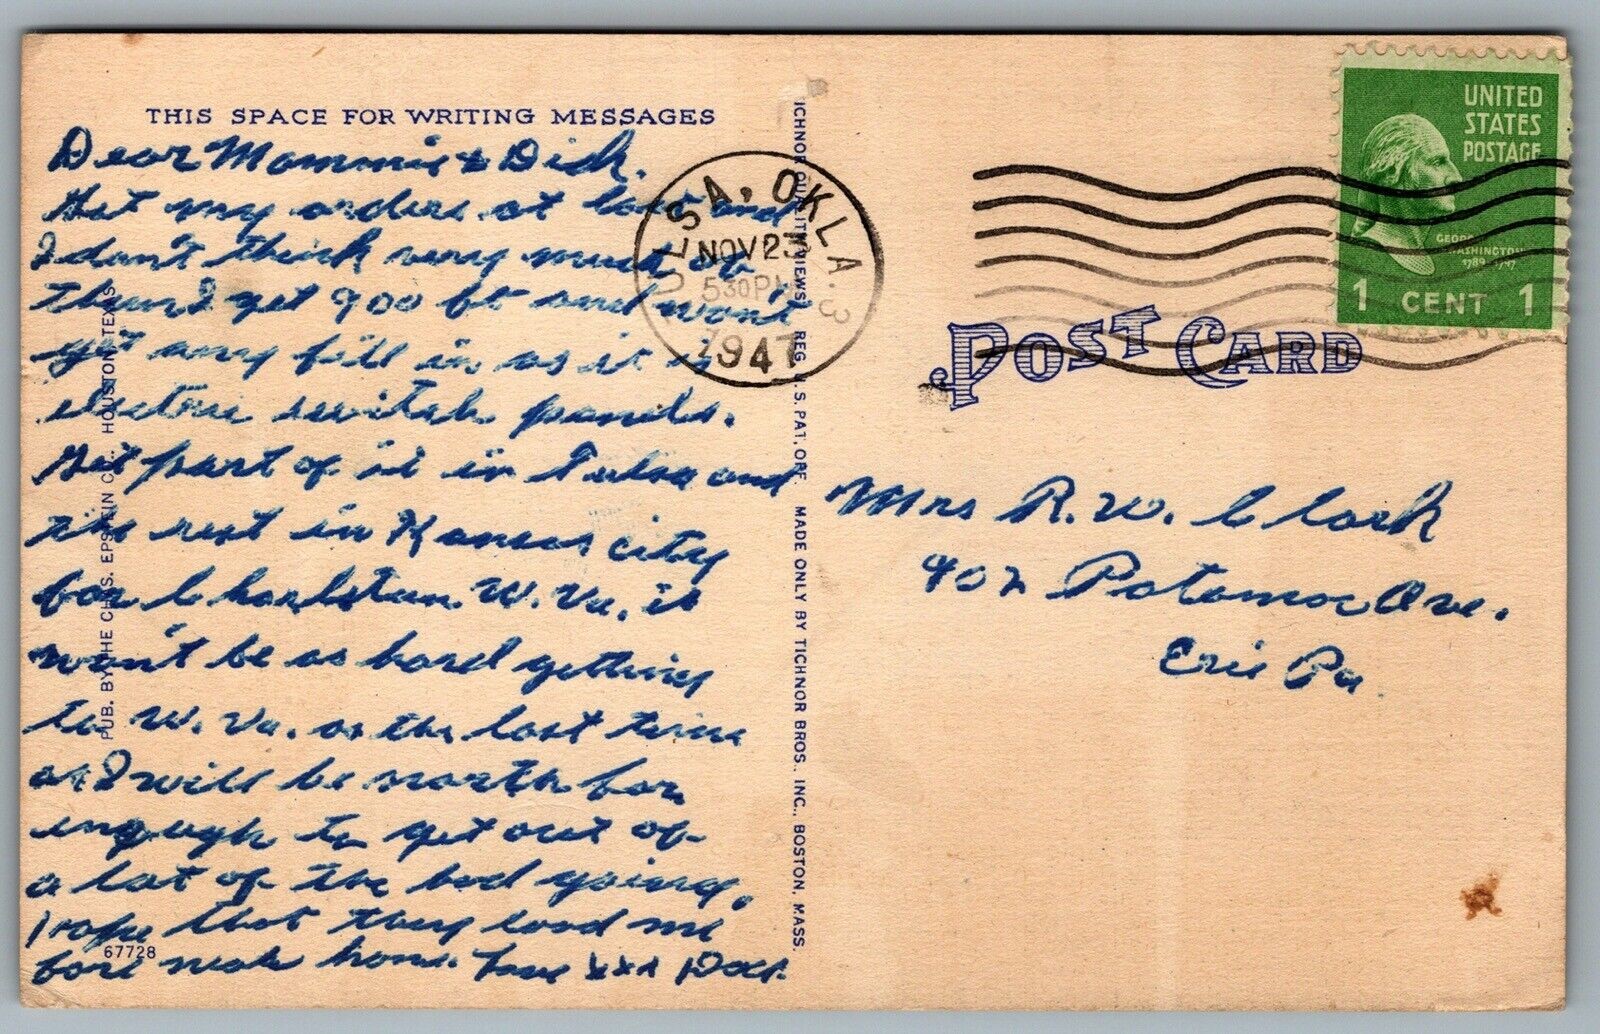 THIS SPACE FOR WRITING MESSAGES
Dear Mommie & Dick.
Got my orders at last and
I don't think very much of
them I get 900 ft and won't
get any fill in as it is
electric switch panels.
Get part of it in Tulsa and
the rest in Kansas city
for Charleston W. Va. it
won't be as hard getting
to W. Va. as the last time
as I will be north far
enough to get out of
a lot of the bad going.
hope that they load me
for home. Love xxx Dad.
67728
PUB. BY THE CHAS. EPSTEIN CO., HOUSTON, TEXAS
TICHNOR QUALITY VIEWS REG. U. S. PAT. OFF. MADE ONLY BY TICHNOR BROS., INC., BOSTON, MASS.
TULSA, OKLA. 3
NOV 23
5 30 PM
1947
UNITED
STATES
POSTAGE
GEORGE
WASHINGTON
1789-1797
1 CENT 1
POST CARD
Mrs R. W. Clark
902 Potomac Ave.
Erie Pa.